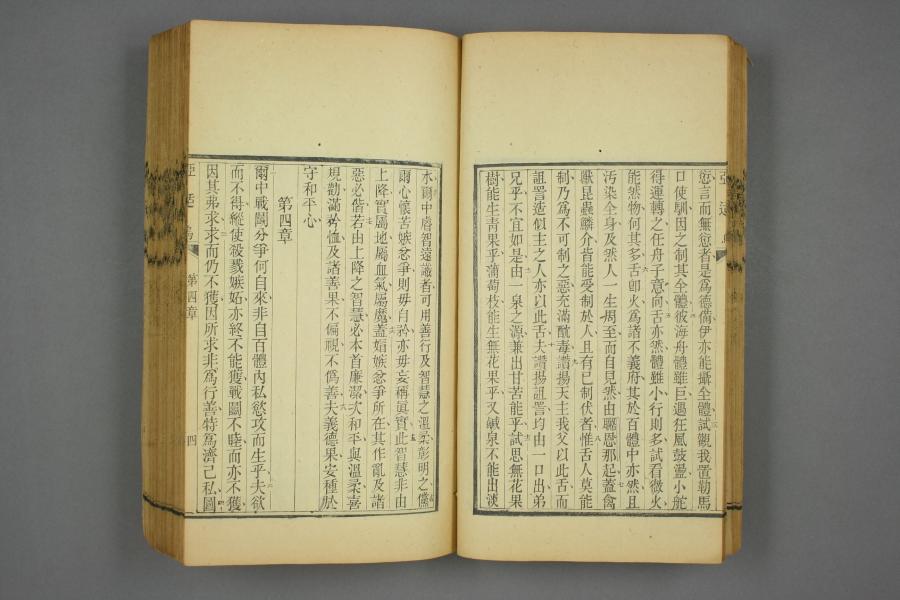 愆言而無愆者是爲德備伊亦能攝全體試觀我置勒馬
口使馴因之制其全體彼海舟體雖巨遇狂風鼓盪小舵
得運轉之任舟子意向舌亦然體雖小行則多試看微火
能然物何其多舌卽火爲諸不義府其於百體中亦然且
汚染全身及然人一生周至而自見然由那起蓋禽
獸昆蟲鱗介皆能受制於人且有已制伏者惟舌人莫能
制乃爲不可制之惡充滿酖毒讚揚天主我父以此舌而
詛詈造似主之人亦以此舌夫讚揚詛詈均由一口出弟
兄乎不宜如是由一泉之源兼出甘苦能乎試思無花果
樹能生青果乎蒲萄枝能生無花果乎又鹹泉不能出淡
水爾中睿智遠識者可用善行及智慧之溫柔彰明之儻
爾心懷苦嫉忿爭則毋自矜亦毋妄稱眞實此智慧非由
上降實屬地屬血氣屬魔蓋媢嫉忿爭所在其作亂及諸
惡必偕若由上降之智慧必本首廉潔次和平與溫柔喜
規勸滿矜恤及諸善果不偏視不僞善夫義德果安種於
守和平心
第四章
爾中戰鬭分爭何自來非自百體內私慾攻而生乎夫欲
而不得縱使殺戮嫉妬亦終不能獲戰鬭不睦而亦不獲
因其弗求求而仍不獲因所求非爲行善特爲濟己私圖
第四章
四